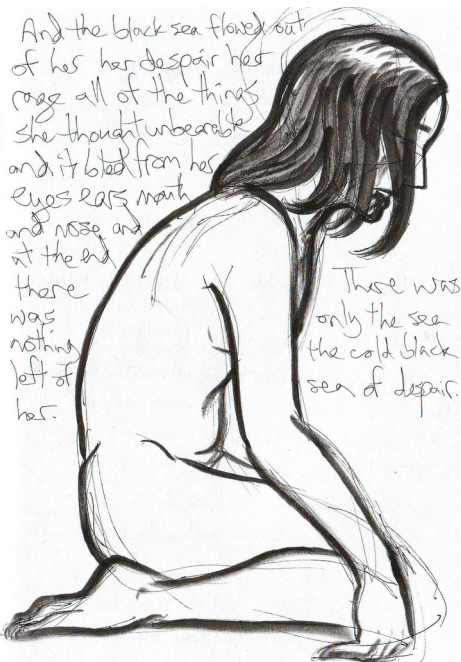 And the black sea flowed out
of her her despair her
rage all of the things
she thought unbearable
and it bled from her
eyes ears mouth
and nose and
at the end
there
was
nothing
left of
her.
There was
only the sea
the cold black
sea of despair.